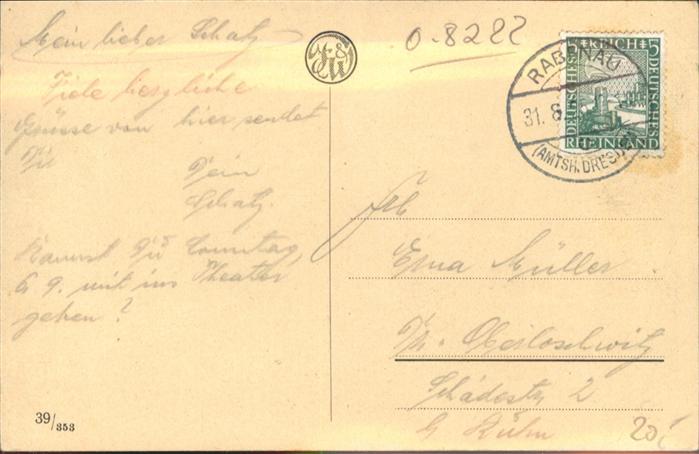 Mein lieber Schatz
Viele herzliche
Grüsse von hier sendet
Dir Dein
Schatz.
Kannst Du Sonntag,
6 9. mit ins Theater
gehen?
39/353
0-8222
5 REICH 5
DEUTSCHES
DEUTSCHES
RHEINLAND
RABENAU
31. 8
(AMTSH. DRESD
Erna Müller.
Oberloschwitz
Schädestr 2
b Kühn
20